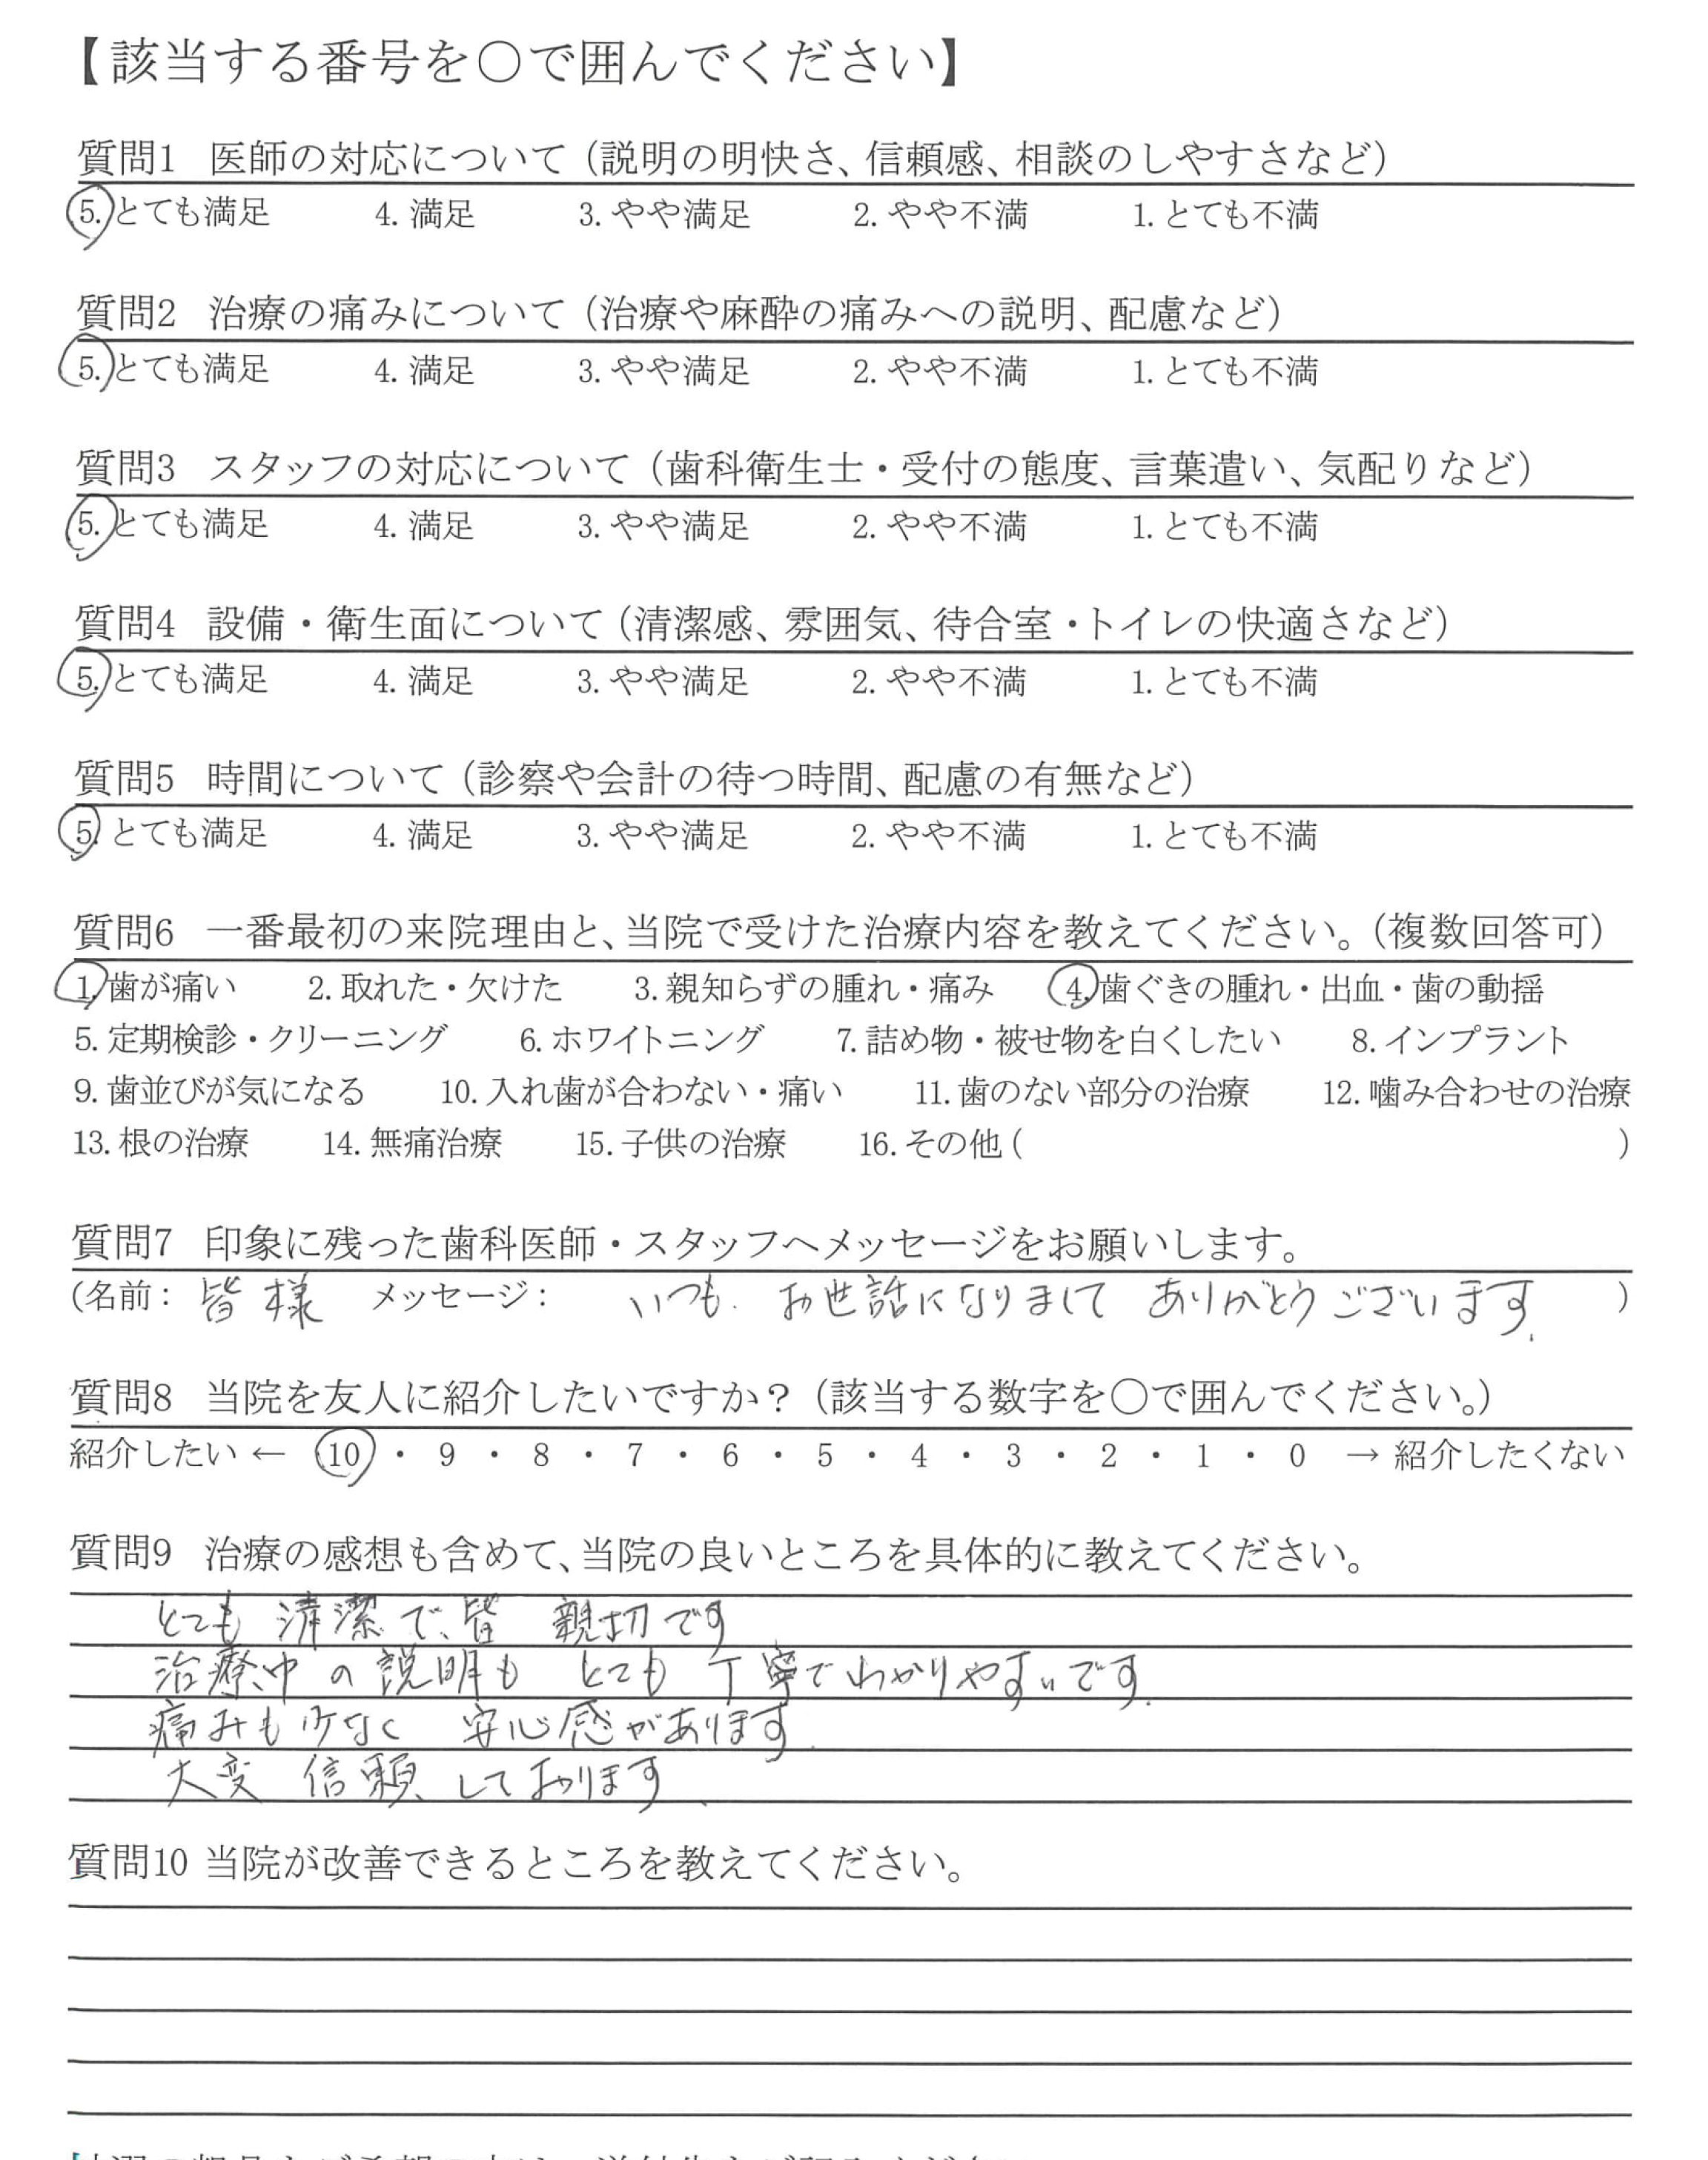 【該当する番号を〇で囲んでください】
質問1 医師の対応について（説明の明快さ、信頼感、相談のしやすさなど）
5. とても満足 4. 満足 3. やや満足 2. やや不満 1. とても不満
質問2 治療の痛みについて（治療や麻酔の痛みへの説明、配慮など）
5. とても満足 4. 満足 3. やや満足 2. やや不満 1. とても不満
質問3 スタッフの対応について（歯科衛生士・受付の態度、言葉遣い、気配りなど）
5. とても満足 4. 満足 3. やや満足 2. やや不満 1. とても不満
質問4 設備・衛生面について（清潔感、雰囲気、待合室・トイレの快適さなど）
5. とても満足 4. 満足 3. やや満足 2. やや不満 1. とても不満
質問5 時間について（診察や会計の待つ時間、配慮の有無など）
5. とても満足 4. 満足 3. やや満足 2. やや不満 1. とても不満
質問6 一番最初の来院理由と、当院で受けた治療内容を教えてください。（複数回答可）
1. 歯が痛い 2. 取れた・欠けた 3. 親知らずの腫れ・痛み 4. 歯ぐきの腫れ・出血・歯の動揺
5. 定期検診・クリーニング 6. ホワイトニング 7. 詰め物・被せ物を白くしたい 8. インプラント
9. 歯並びが気になる 10. 入れ歯が合わない・痛い 11. 歯のない部分の治療 12. 噛み合わせの治療
13. 根の治療 14. 無痛治療 15. 子供の治療 16. その他（ ）
質問7 印象に残った歯科医師・スタッフへメッセージをお願いします。
（名前： 皆様 メッセージ： いつも お世話になりまして ありがとうございます. ）
質問8 当院を友人に紹介したいですか？（該当する数字を〇で囲んでください。）
紹介したい ← 10 ・ 9 ・ 8 ・ 7 ・ 6 ・ 5 ・ 4 ・ 3 ・ 2 ・ 1 ・ 0 → 紹介したくない
質問9 治療の感想も含めて、当院の良いところを具体的に教えてください。
とても 清潔で、皆 親切です
治療中の説明も とても 丁寧でわかりやすいです.
痛みも少なく 安心感があります.
大変 信頼しております.
質問10 当院が改善できるところを教えてください。